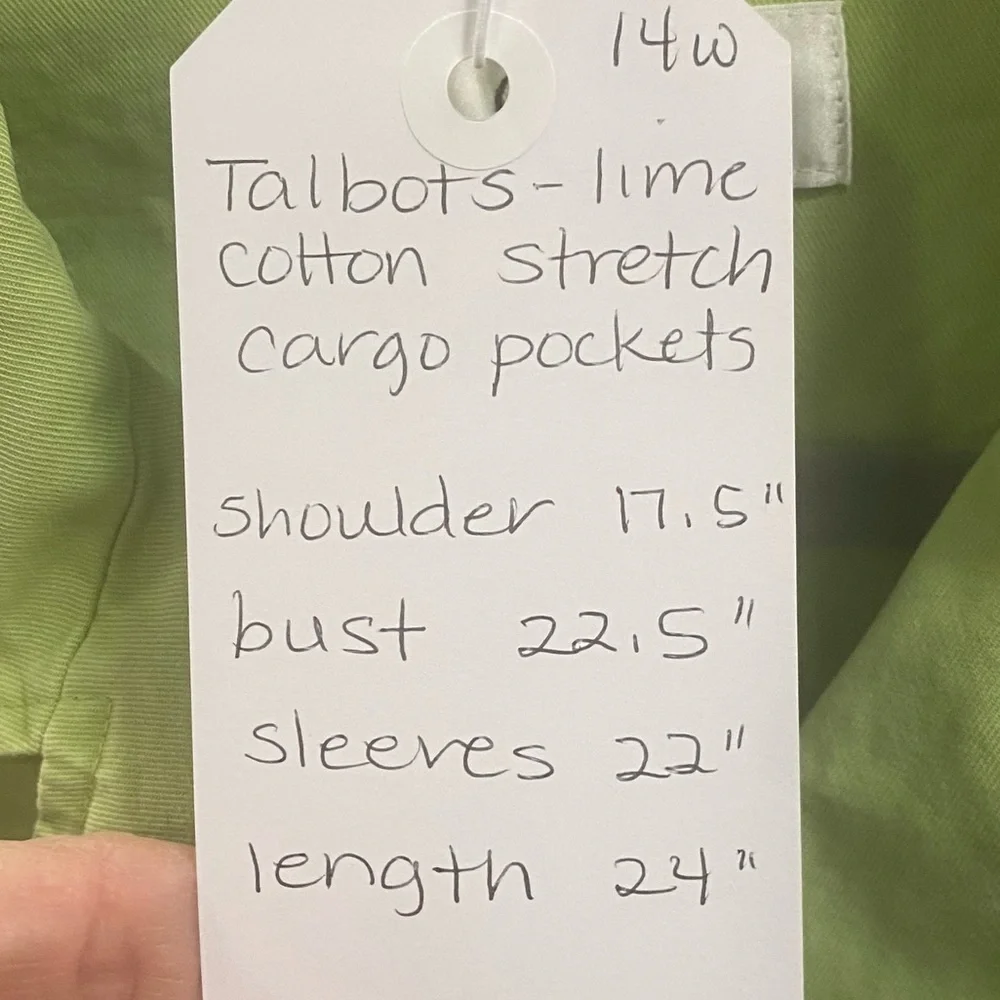 14W
Talbots - lime
cotton stretch
cargo pockets
shoulder 17.5"
bust 22.5"
sleeves 22"
length 24"